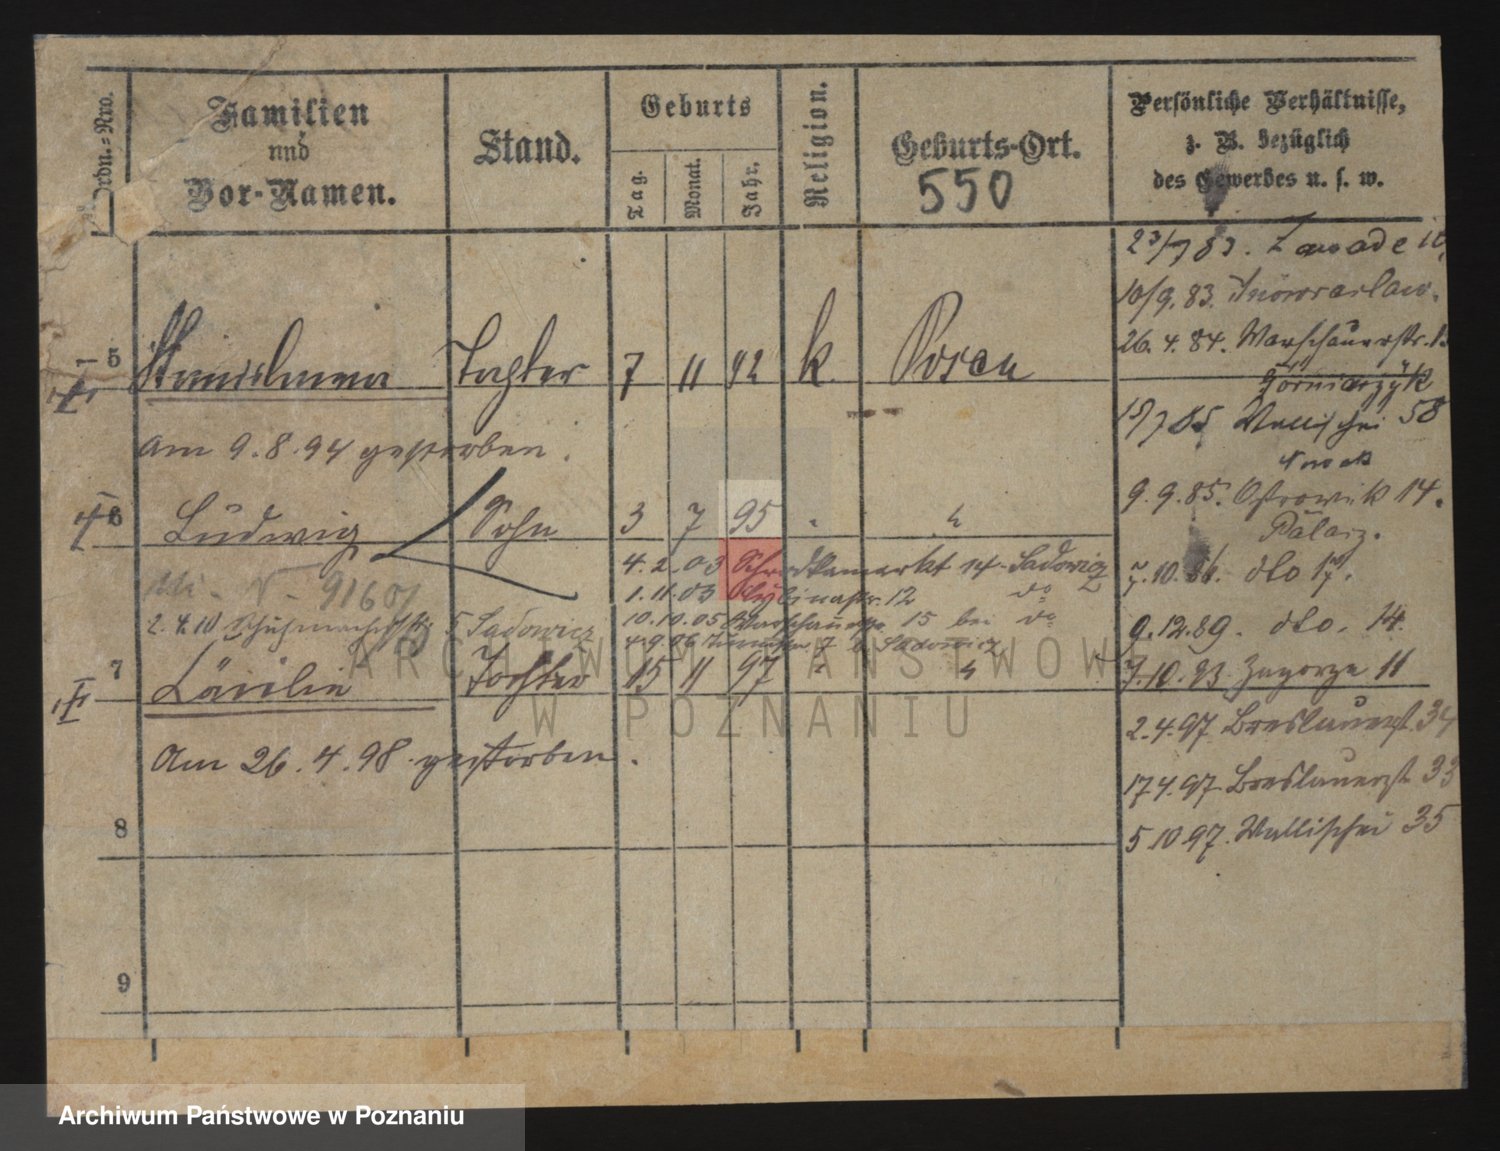 Ordn.-Nro.
Familien
und
Vor-Namen.
Stand.
Geburts
Tag.
Monat.
Jahr.
Religion.
Geburts-Ort.
550
Persönliche Verhältnisse,
z. B. bezüglich
des Gewerbes u. s. w.
5 Stanislawa Tochter 7 11 92 k. Posen
am 9.8.94 gestorben.
6 Ludwig Sohn 3 7 95
4.2.03 14 Sadowicz
1.11.03 12 do
91601
10.10.05 15 bei do
2.4.10 5 Sadowicz
4.9.06 7 b. Sadowicz
7 Cäcilie Tochter 15 11 97
Am 26.4.98 gestorben.
8
9
23/7 83. Zawade
10/9. 83. Inowraclaw.
26. 4. 84. Warschauerstr.
Górniaczyk
15/7 85 Wallischei 58
Nowak
9. 9. 85. Ostrowek 14.
Palacz.
7. 10. 86. dto 17.
9. 12. 89. dto. 14.
7. 10. 93. Zagorze 11
2. 4. 97. Breslauerst. 34
17 4. 97. Breslauerst 33
5 10 97. Wallischei 35
ARCHIWUM PAŃSTWOWE
W POZNANIU
Archiwum Państwowe w Poznaniu